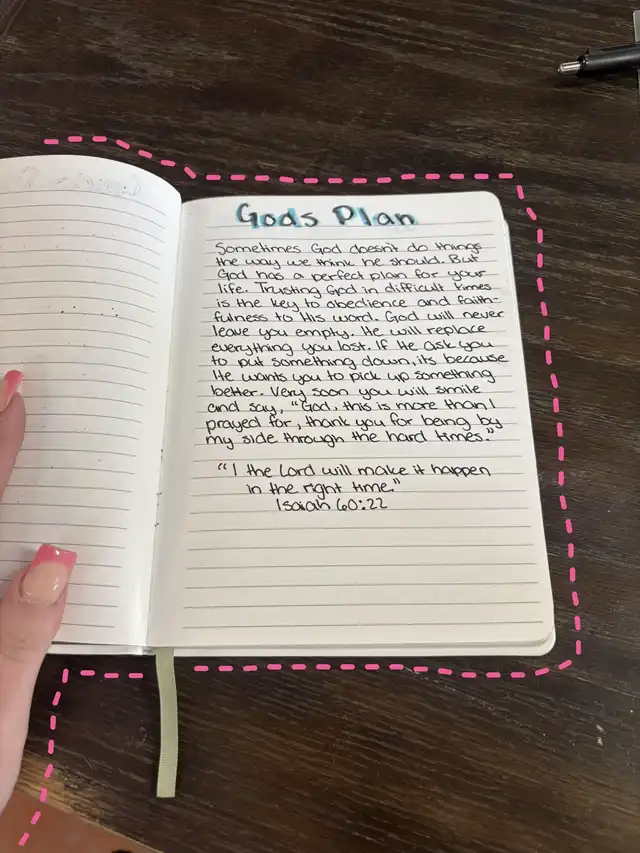 Gods Plan
Sometimes God doesn't do things
the way we think he should. But
God has a perfect plan for your
life. Trusting God in difficult times
is the key to obedience and faith-
fulness to His word. God will never
leave you empty. He will replace
everything you lost. If He ask you
to put something down, its because
He wants you to pick up something
better. Very soon you will smile
and say, "God, this is more than I
prayed for, thank you for being by
my side through the hard times."
"I the Lord will make it happen
in the right time."
Isaiah 60:22